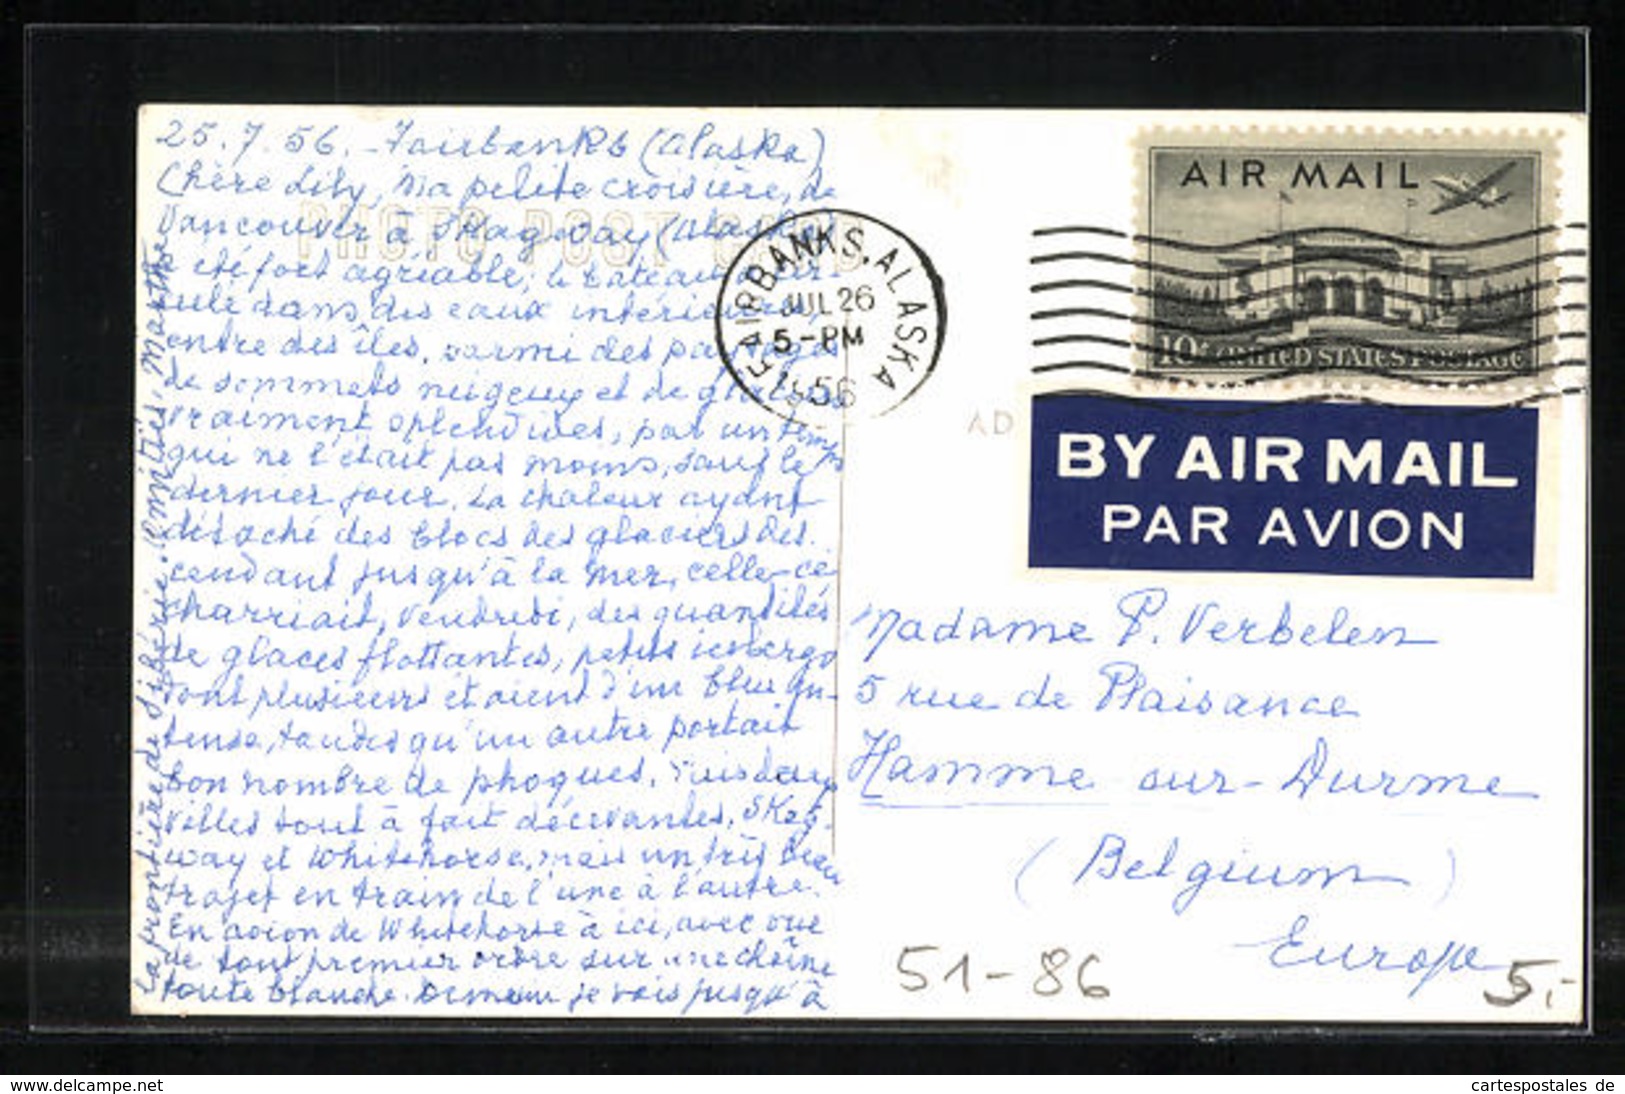 25.7.56. - Fairbanks (Alaska)
Chère Lily, Ma petite croisière, de
Vancouver à Skagway (Alaska)
a été fort agréable; le bateau cir-
cule dans des eaux intérieures,
entre des îles, parmi des paysages
de sommets neigeux et de glaciers
vraiment splendides, par un temps
qui ne l'était pas moins, sauf le
dernier jour. La chaleur ayant
détaché des blocs des glaciers des-
cendant jusqu'à la mer, celle-ci
charriait, Vendredi, des quantités
de glaces flottantes, petits icebergs
dont plusieurs étaient d'un bleu in-
tense, tandis qu'un autre portait
bon nombre de phoques. Puis deux
villes tout à fait décevantes, Skag-
way et Whitehorse, mais un très beau
trajet en train de l'une à l'autre.
En avion de Whitehorse à ici, avec vue
de tout premier ordre sur une chaîne
toute blanche. Demain je vais jusqu'à
la frontière de Sibérie. Amitiés, Marthe
PHOTO POST CARD
FAIRBANKS, ALASKA
JUL 26
5-PM
1956
AIR MAIL
10¢ UNITED STATES POSTAGE
AD
BY AIR MAIL
PAR AVION
Madame P. Verbelen
5 rue de Plaisance
Hamme sur-Durme
(Belgium)
Europe
51-86
5.-
www.delcampe.net
cartespostales de